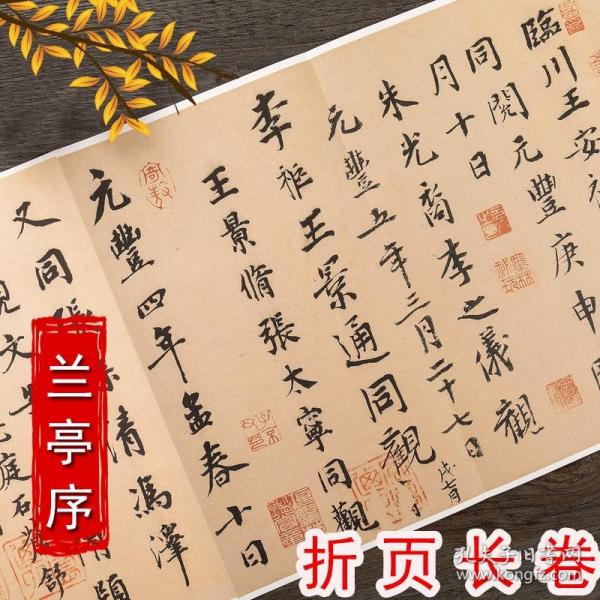 臨川王安
同閱元豐庚申
月十日
朱光裔李之儀觀
元豐五年三月二十七日
李 王景通同觀
王景脩張太寧同觀
元豐四年孟春十日
又同張 清馮澤
文 庭石
兰亭序
折页长卷
孔夫子旧书网
www.kongfz.com